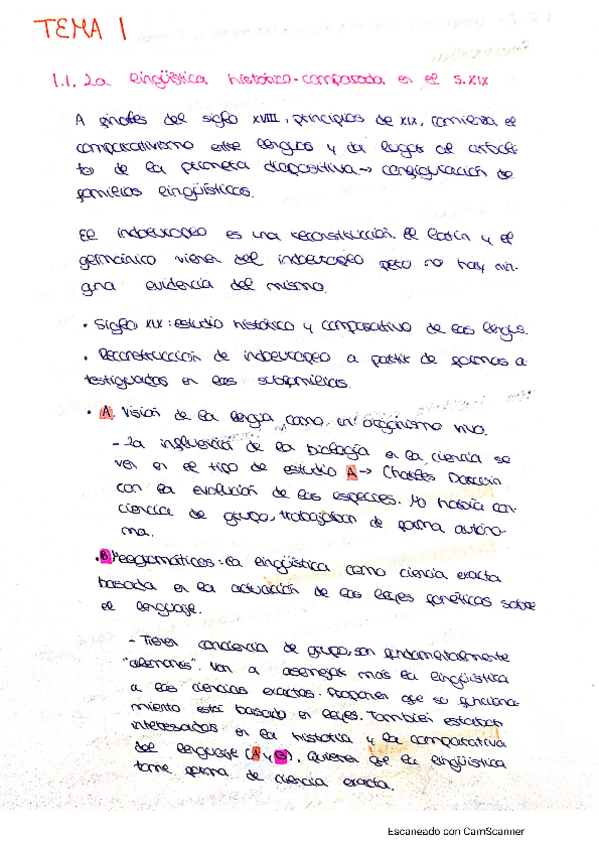 TEMA 1
1.1. La lingüística histórico-comparada en el s.XIX
A finales del siglo XVIII, principios de XIX, comienza el
comparativismo entre lenguas y da lugar al
de la primera diapositiva → configuración de
familias lingüísticas.
El indoeuropeo es una reconstrucción. El latín y el
germánico vienen del indoeuropeo pero no hay nin-
guna evidencia del mismo.
• Siglo XIX: estudio histórico y comparativo de las lenguas.
• Reconstrucción de indoeuropeo a partir de formas a
testiguadas en las subfamilias.
• A. Visión de la lengua como un organismo vivo.
- La influencia de la Biología en la ciencia se
ven en el tipo de estudio A → Charles Darwin
con la evolución de las especies. No había con-
ciencia de grupo, trabajaban de forma autóno-
ma.
• B Neogramáticos: la lingüística como ciencia exacta
basada en la actuación de las leyes fonéticas sobre
el lenguaje.
- Tienen conciencia de grupo, son fundamentalmente
"alemanes". Van a asemejar más la lingüística
a las ciencias exactas. Proponen que su funciona-
miento está basado en leyes. También estaban
interesados en la historia y la comparativa
del lenguaje (A y B). Quieren que la lingüística
tome forma de ciencia exacta.
Escaneado con CamScanner